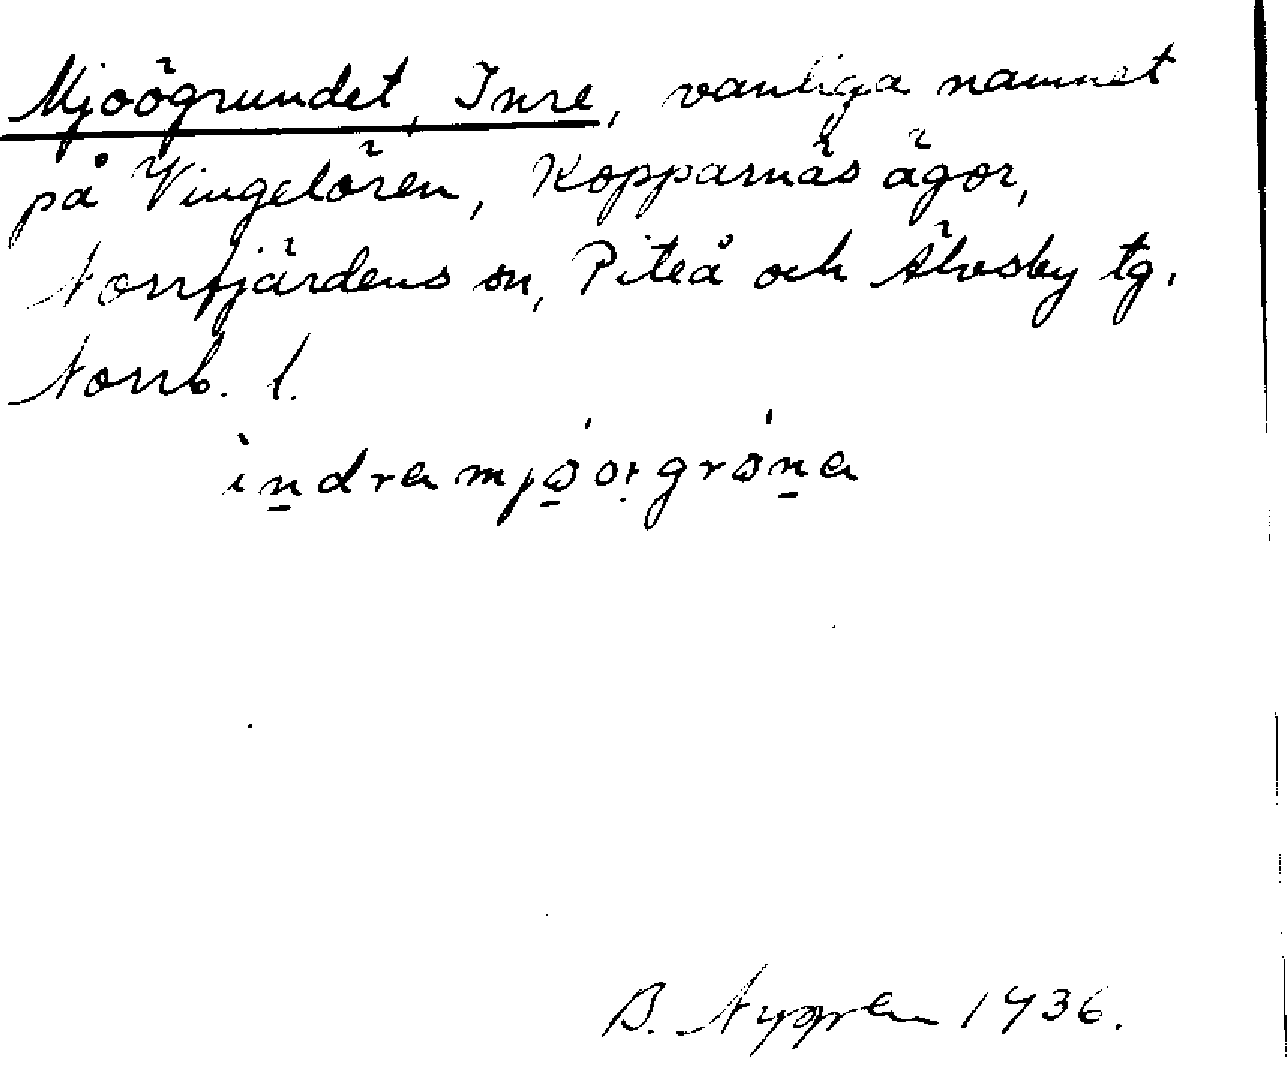 Mjoögrundet, Inre, vanliga namnet
på Vingelören, Kopparnäs ägor,
Norrfjärdens sn, Piteå och Älvsby tg.
Norrb. l.
indra mjö̱o:grö̱ṉa
B. Nygren 1936.